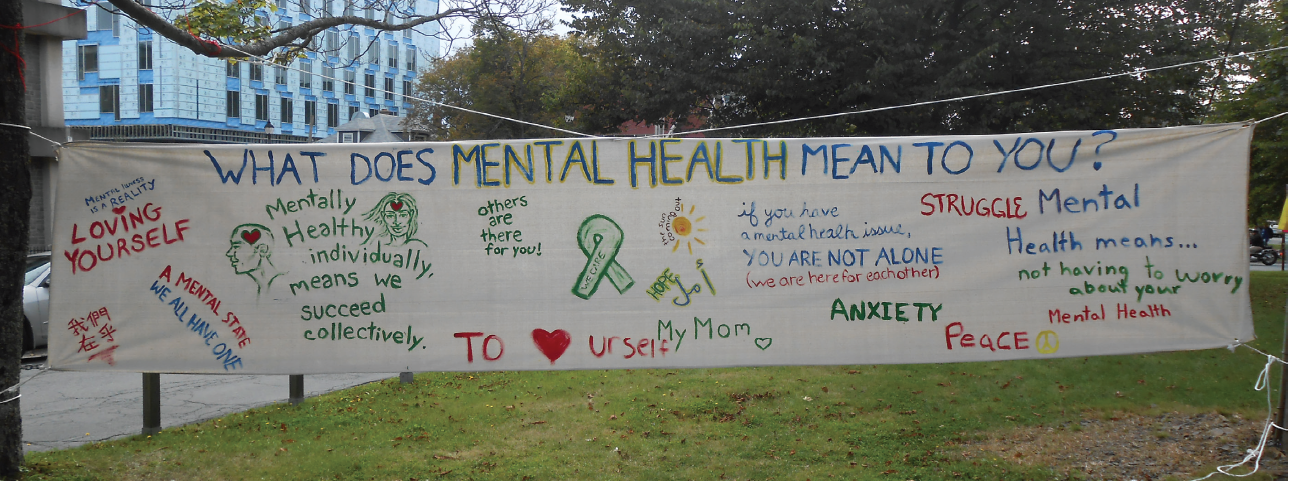 WHAT DOES MENTAL HEALTH MEAN TO YOU?
MENTAL Illness
IS A REALITY
LOVING
YOURSELF
A MENTAL STATE
WE ALL HAVE ONE
我們
在乎
Mentally
Healthy
individually,
means we
succeed
collectively.
others
are
there
for you!
WE CARE
the sun
coming out
HOPE
أمل
TO ❤ urself
My Mom ♡
if you have
a mental health issue,
YOU ARE NOT ALONE
(we are here for each other)
ANXIETY
STRUGGLE
PEACE ☮
Mental
Health means...
not having to worry
about your
Mental Health